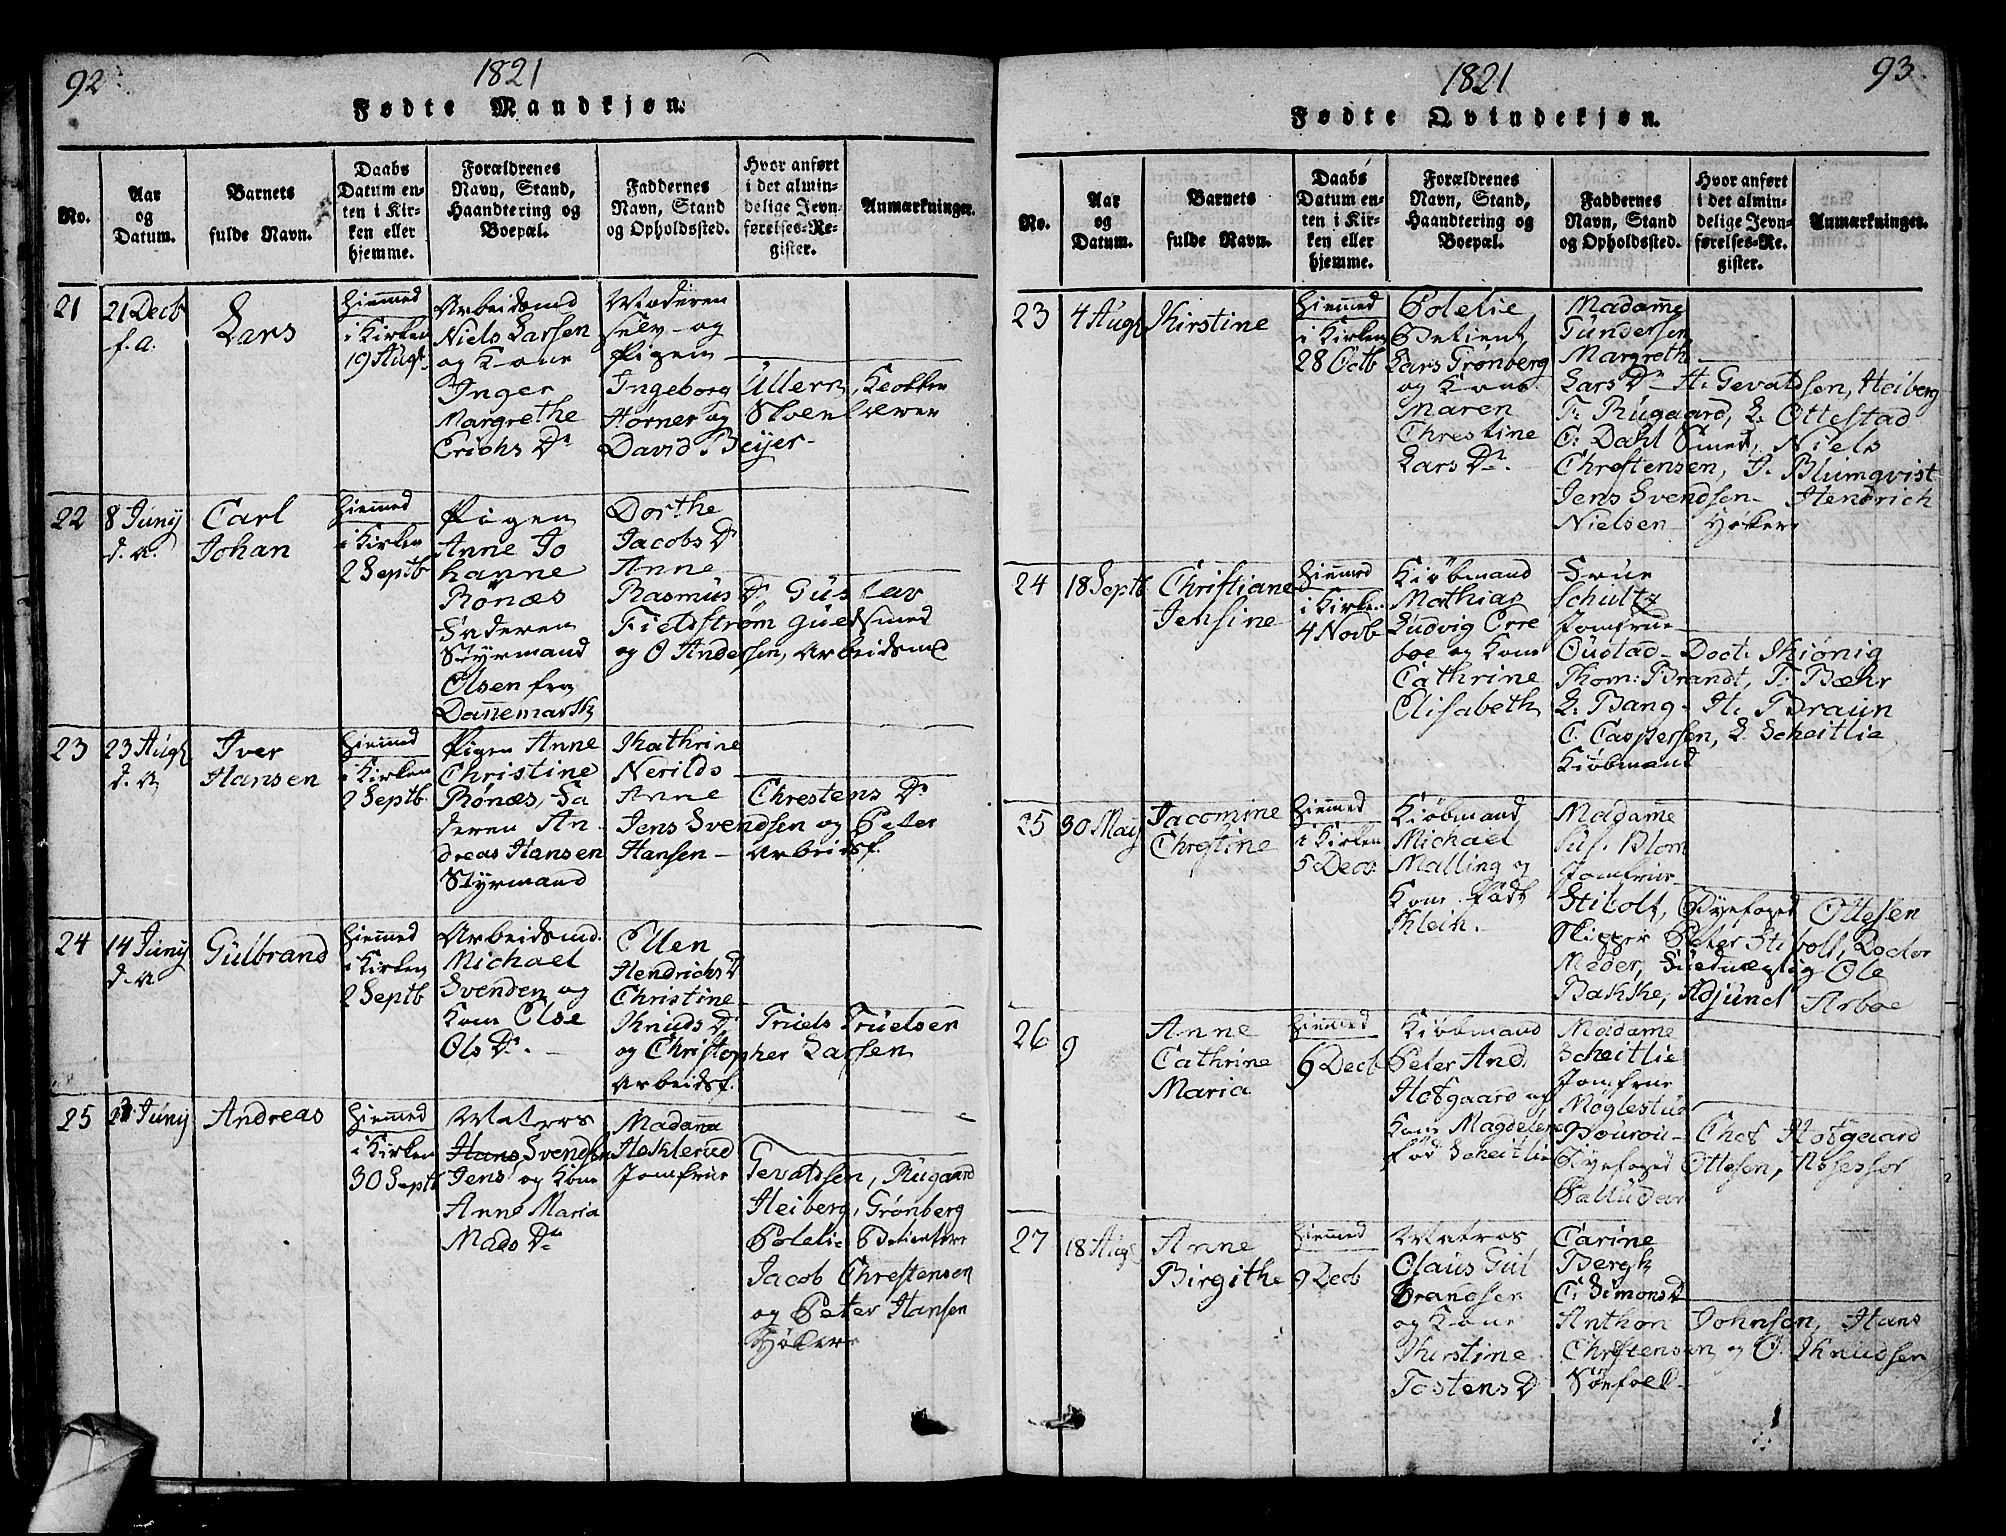 92.
1821
Fødte Mandkjøn.
No.
Aar
og
Datum.
Barnets
fulde Navn.
Daabs
Datum en-
ten i Kir-
ken eller
hjemme.
Forældrenes
Navn, Stand,
Haandtering og
Boepæl.
Faddernes
Navn, Stand
og Opholdssted.
Hvor anført
i det almin-
delige Jevn-
førelses-Re-
gister.
Anmærkninger.
21
21 Decb
f. a.
Lars
Hiemmed
i Kirken
19 Augt.
Arbeidsmd
Niels Larsen
og Kone
Inger
Margrethe
Erichs Dr
Moderen
selv og
Pigen
Ingeborg Ullern, Kokken
Hørner og
David Beÿer
22
8 Juny
d. a.
Carl
Johan
Hiemmed
i Kirken
2 Septb
Pigen
Anne Jo
hanne
Rönæs
Faderen
Styrmand
Olsen fra
Dannemark
Dorthe
Jacobs Dr
Anne
Rasmus Dr Gustav
Fieldstrøm Guldsmed
og O Andersen, Arbeidsmd
23
23 Augt
d. a
Iver
Hansen
Hiemmed
i Kirken
2 Septb
Pigen Anne
Christine
Rönæs, Fa
deren An
dreas Hansen
Styrmand
Kathrine
Nerilds
Anne Chrestens Dr
Jens Svendsen og Peter
Hansen - Arbeidsf.
24
14 Juny
d. a
Gulbrand
Hiemmed
i Kirken
2 Septb
Arbeidsmd.
Michael
Svenden og
Kone Else
Ols Dr.
Ellen
Hendrichs Dr
Christine
Knuds Dr Truels Truelsen
og Christopher Larsen
Arbeidsf.
25
Juny
Andreas
Hiemmed
i Kirken
30 Septb
Matros
Hans Svendsen
Jens og Kone
Anne Maria
Mads Dr
Madame
Heklerud
Jomfrue
Gevaldsen, Rugaard
Heiberg, Grønberg
Polelie Betientere
Jacob Chrestensen
og Peter Hansen
Høkere
93.
1821
Fødte Qvindekjøn.
No.
Aar
og
Datum.
Barnets
fulde Navn.
Daabs
Datum en-
ten i Kir-
ken eller
hjemme.
Forældrenes
Navn, Stand,
Haandtering og
Boepæl.
Faddernes
Navn, Stand
og Opholdssted.
Hvor anført
i det almin-
delige Jevn-
førelses-Re-
gister.
Anmærkninger.
23
4 Augt
Kirstine
Hiemmed
i Kirken
28 Octb
Polelie,
Betient,
Lars Grønberg
og Kone
Maren
Chrestine
Lars Dr.
Madame
Gundersen
Margrethe
Lars Dr - H. Gevaldsen, Heiberg
F. Rugaard, L. Ottestad
C. Dahl Smed, Niels
Chrestensen, J. Blumqvist
Jens Svendsen - Hendrich
Nielsen - Høkere
24
18 Septb
Christiane
Jensine
Hiemmed
i Kirken
4 Novb
Kiøbmand
Mathias
Ludvig Erre
boe og Kone
Cathrine
Elisabeth
Frue
Schultz
Jomfrue
Qustad - Doct: Kiønig
Thom: Brandt, F. Bæhr
L. Bang - H. Braun
C. Caspersen, L. Scheitlie
Kiøbmænd
25
30 May
Jacomine
Chrestine
Hiemmed
i Kirken
5 Decb.
Kiøbmand
Michael
Malling og
Kone født
Kleih.
Madame
Sus. Blom
Jomfrue
Stibolt, Byefoged Ottesen
Skipper Peter Stibolt, Doctor
Meder, Ole
Bakke, Adjunct Arboe
26
9
Anne
Cathrine
Maria
Hiemmed
6 Decb
Kiøbmand
Peter And
Hofgaard og
Kone Magdelene
fød Scheitlie
Madame
Scheitlie
Jomfrue
Møglestue
Chof Hofgaard
Byefoged Ottesen, Assessor
Palludan
27
18 Augt
Anne
Birgithe
Hiemmed
9 Decb
Matros
Claus Gul
brandsen
og Kone
Kirstine
Tostens Dr
Carine
Bergk
C. Simons Dr
Anthon Johnsen, Hans
Chrestensen og O. Knudsen
Søefolk